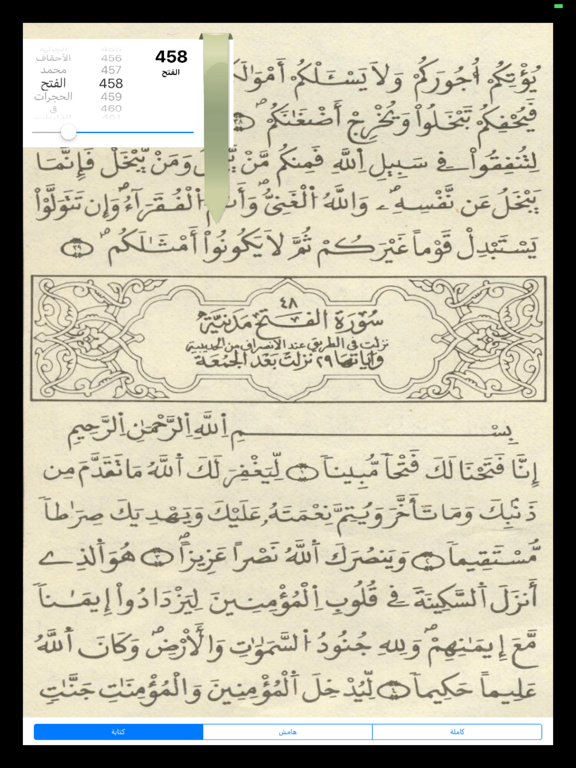 الأحقاف 456
محمد 457
الفتح 458
الحجرات 459
ق 460
458
الفتح
يُؤْتِكُمُ أُجُورَكُمْ وَلَا يَسْـَٔلْكُمْ أَمْوَٰلَكُ
فَيُحْفِكُمْ تَبْخَلُواْ وَيُخْرِجْ أَضْغَٰنَكُمْ
لِتُنفِقُواْ فِے سَبِيلِ اِللَّهِ فَمِنكُم مَّنْ يَّبْخَلُ وَمَنْ يَّبْخَلْ فَإِنَّمَا
يَبْخَلُ عَن نَّفْسِهِۦ وَاللَّهُ اُلْغَنِيُّ وَأَنتُمُ اُلْفُقَرَآءُ وَإِن تَتَوَلَّوْاْ
يَسْتَبْدِلْ قَوْماً غَيْرَكُمْ ثُمَّ لَا يَكُونُواْ أَمْثَٰلَكُم ٣٩
٤٨
سُورَةُ الفَتْحِ مَدَنِيَّة
نزلت في الطريق عند الانصراف من الحديبية
وآياتها ٢٩ نزلت بَعْدَ الجُمُعَة
بِسْمِ اِللَّهِ اِلرَّحْمَٰنِ اِلرَّحِيمِ
إِنَّا فَتَحْنَا لَكَ فَتْحاً مُّبِيناً ١ لِّيَغْفِرَ لَكَ اَللَّهُ مَا تَقَدَّمَ مِن
ذَنۢبِكَ وَمَا تَأَخَّرَ وَيُتِمَّ نِعْمَتَهُۥ عَلَيْكَ وَيَهْدِيَكَ صِرَٰطاً
مُّسْتَقِيماً ٢ وَيَنصُرَكَ اَللَّهُ نَصْراً عَزِيزاً ٣ هُوَ اَلذِے
أَنزَلَ اَلسَّكِينَةَ فِے قُلُوبِ اِلْمُؤْمِنِينَ لِيَزْدَادُواْ إِيمَٰناً
مَّعَ إِيمَٰنِهِمْ وَلِلهِ جُنُودُ اُلسَّمَٰوَٰتِ وَالْأَرْضِ وَكَانَ اَللَّهُ
عَلِيماً حَكِيماً ٤ لِّيُدْخِلَ اَلْمُؤْمِنِينَ وَالْمُؤْمِنَٰتِ جَنَّٰتٍ
كاملة
هامش
كتابة